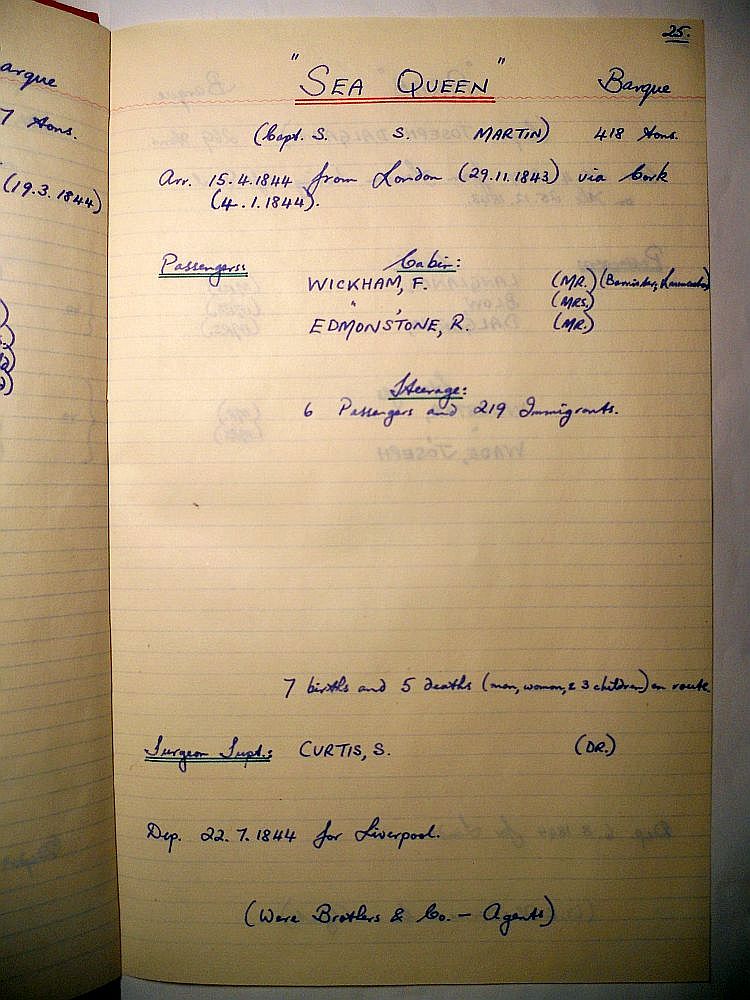 arque
7 tons.
(19.3.1844)
25.
"SEA QUEEN" Barque
(Capt. S. S. MARTIN) 418 tons.
Arr. 15.4.1844 from London (29.11.1843) via Cork
(4.1.1844).
Passengers: Cabin:
WICKHAM, F. (MR.) (Barrister, Launceston)
" , (MRS.)
EDMONSTONE, R. (MR.)
Steerage:
6 Passengers and 219 Immigrants.
7 births and 5 deaths (man, woman, & 3 children) en route.
Surgeon Supt.: CURTIS, S. (DR.)
Dep. 22.7.1844 for Liverpool.
(Were Brothers & Co. - Agents)